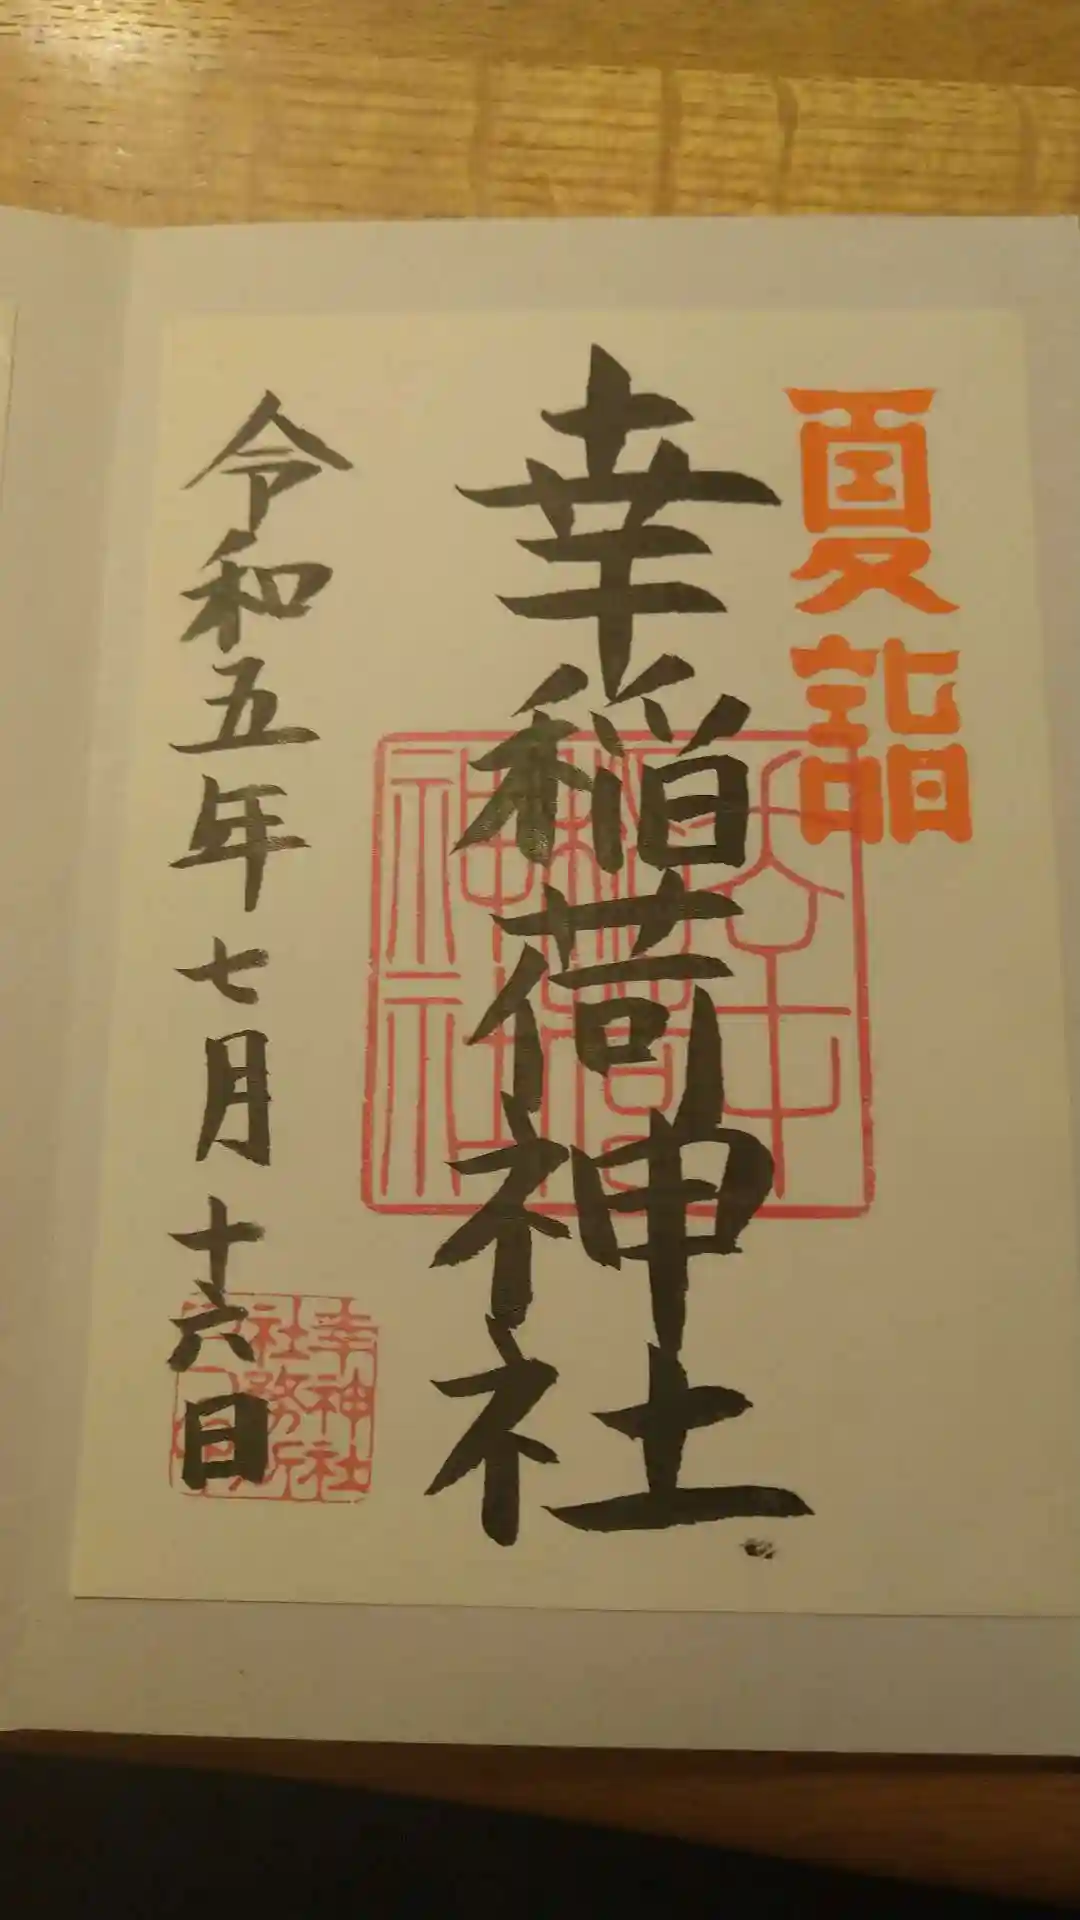 夏詣
幸稲荷神社
幸稲荷神社
令和五年七月十六日
幸神社
社務所